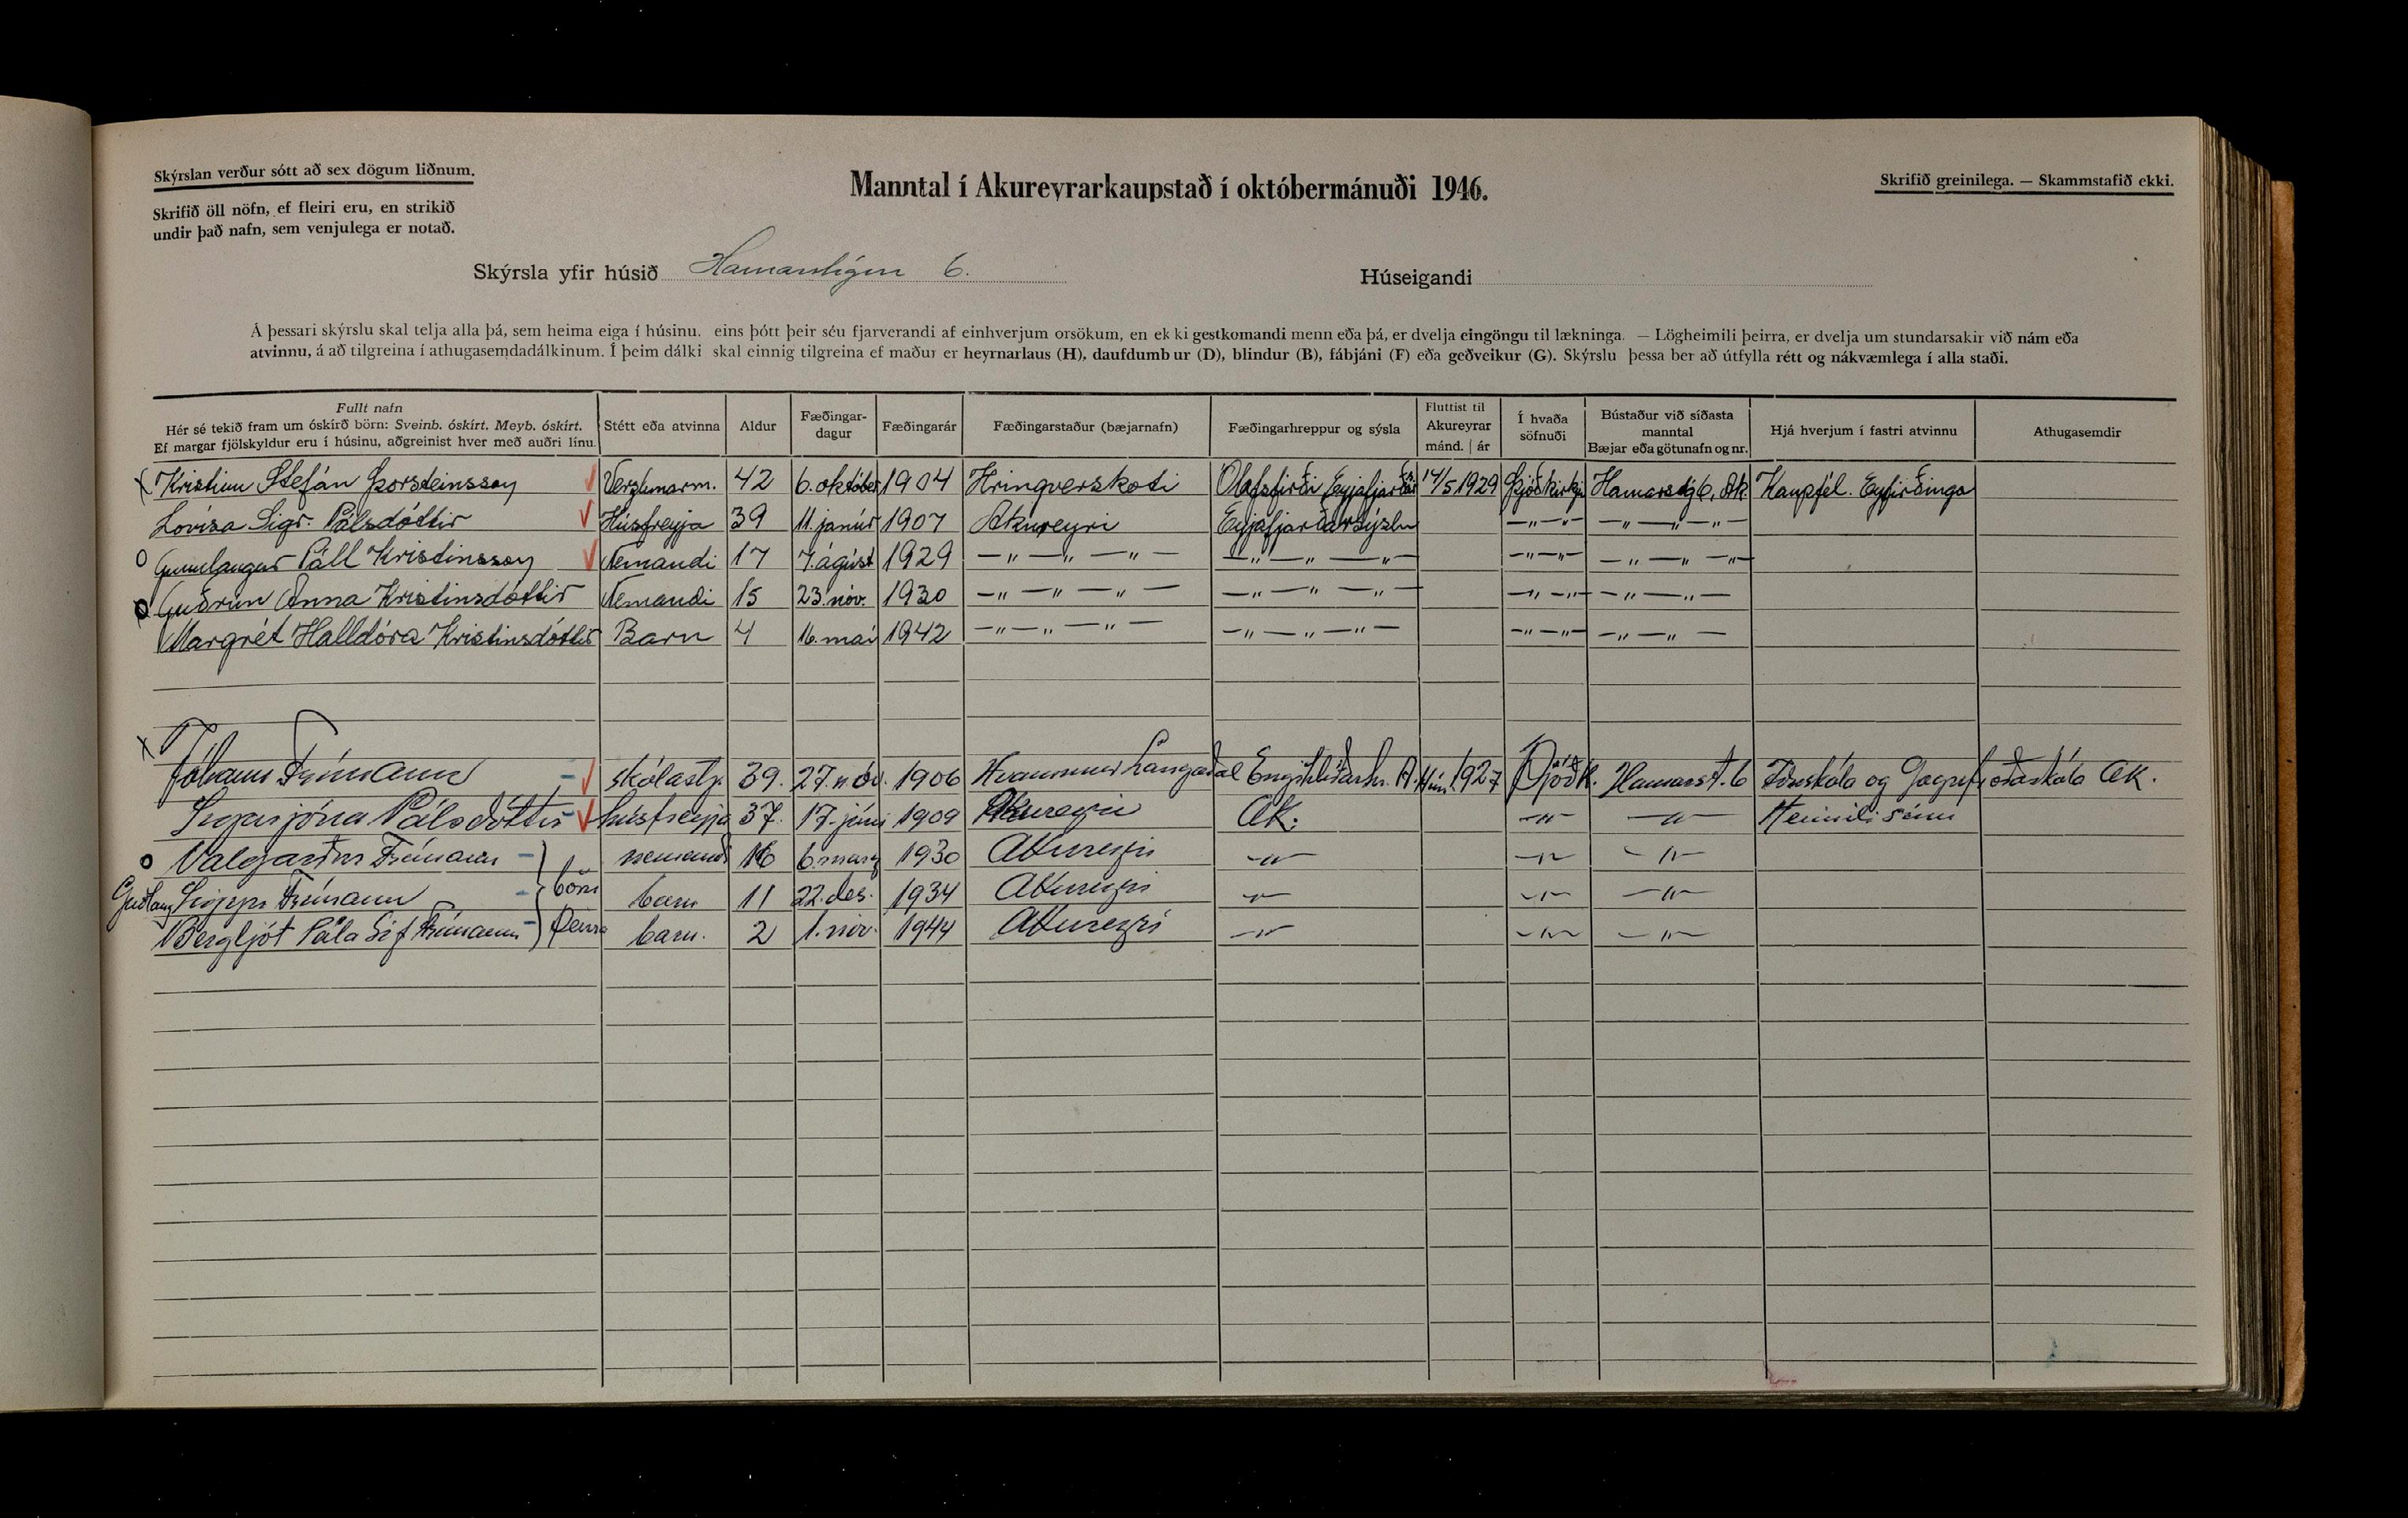 Skýrslan verður sótt að sex dögum liðnum.
Skrifið öll nöfn, ef fleiri eru, en strikið
undir það nafn, sem venjulega er notað.
Manntal í Akureyrarkaupstað í októbermánuði 1946.
Skrifið greinilega. — Skammstafið ekki.
Skýrsla yfir húsið Hamarstígur 6.
Húseigandi
Á þessari skýrslu skal telja alla þá, sem heima eiga í húsinu, eins þótt þeir séu fjarverandi af einhverjum orsökum, en ekki gestkomandi menn eða þá, er dvelja eingöngu til lækninga. — Lögheimili þeirra, er dvelja um stundarsakir við nám eða
atvinnu, á að tilgreina í athugasemdadálkinum. Í þeim dálki skal einnig tilgreina ef maður er heyrnarlaus (H), daufdumbur (D), blindur (B), fábjáni (F) eða geðveikur (G). Skýrslu þessa ber að útfylla rétt og nákvæmlega í alla staði.
Fullt nafn
Hér sé tekið fram um óskírð börn: Sveinb. óskírt. Meyb. óskírt.
Ef margar fjölskyldur eru í húsinu, aðgreinist hver með auðri línu.
Stétt eða atvinna
Aldur
Fæðingar-
dagur
Fæðingarár
Fæðingarstaður (bæjarnafn)
Fæðingarhreppur og sýsla
Fluttist til
Akureyrar
mánd. | ár
Í hvaða
söfnuði
Bústaður við síðasta
manntal
Bæjar eða götunafn og nr.
Hjá hverjum í fastri atvinnu
Athugasemdir
x Kristinn Stefán Þorsteinsson Verzlunarm. 42 6. október 1904 Hringverskoti Ólafsfirði Eyjafjarðar 14/5 1929 Þjóðkirkju Hamarstíg 6, Ak. Kaupfél. Eyfirðinga
Lovísa Sigr. Pálsdóttir Húsfreyja 39 11. janúar 1907 Akureyri Eyjafjarðarsýslu —"—"— —"—"—
o Gunnlaugur Páll Kristinsson Nemandi 17 7. ágúst 1929 —"—"— —"—"— —"—"— —"—"—
o Guðrún Anna Kristinsdóttir Nemandi 15 23. nóv. 1930 —"—"— —"—"— —"—"— —"—"—
Margrét Halldóra Kristinsdóttir Barn 4 16. maí 1942 —"—"— —"—"— —"—"— —"—"—
x Jóhann Frímann skólastj. 39. 27. nóv. 1906 Hvammur Langadal Engihlíðarhr. A. Hún. 1927 Þjóðk. Hamarst. 6 Iðnskóla og Gagnfræðaskóla Ak.
Sigurjóna Pálsdóttir húsfreyja 37. 17. júní 1909 Akureyri Ak. —"— —"— Heimili sínu
o Valgarður Frímann nemandi 16 6. marz 1930 Akureyri —"— —"— —"—
Guðlaug Sigyn Frímann börn barn 11 22. des. 1934 Akureyri —"— —"— —"—
Bergljót Pála Sif Frímann þeirra barn. 2 1. nóv. 1944 Akureyri —"— —"— —"—